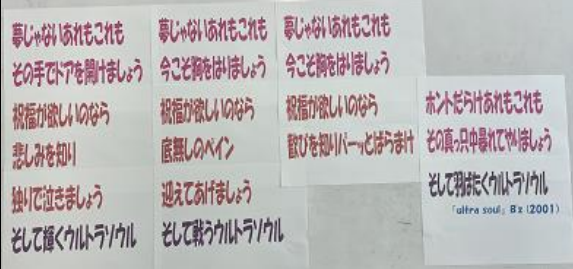 夢じゃないあれもこれも
その手でドアを開けましょう
祝福が欲しいのなら
悲しみを知り
独りで泣きましょう
そして輝くウルトラソウル
夢じゃないあれもこれも
今こそ胸をはりましょう
祝福が欲しいのなら
底無しのペイン
迎えてあげましょう
そして戦うウルトラソウル
夢じゃないあれもこれも
今こそ胸をはりましょう
祝福が欲しいのなら
歓びを知りパーッとばらまけ
ホントだらけあれもこれも
その真っ只中暴れてやりましょう
そして羽ばたくウルトラソウル
「ultra soul」 B'z (2001)